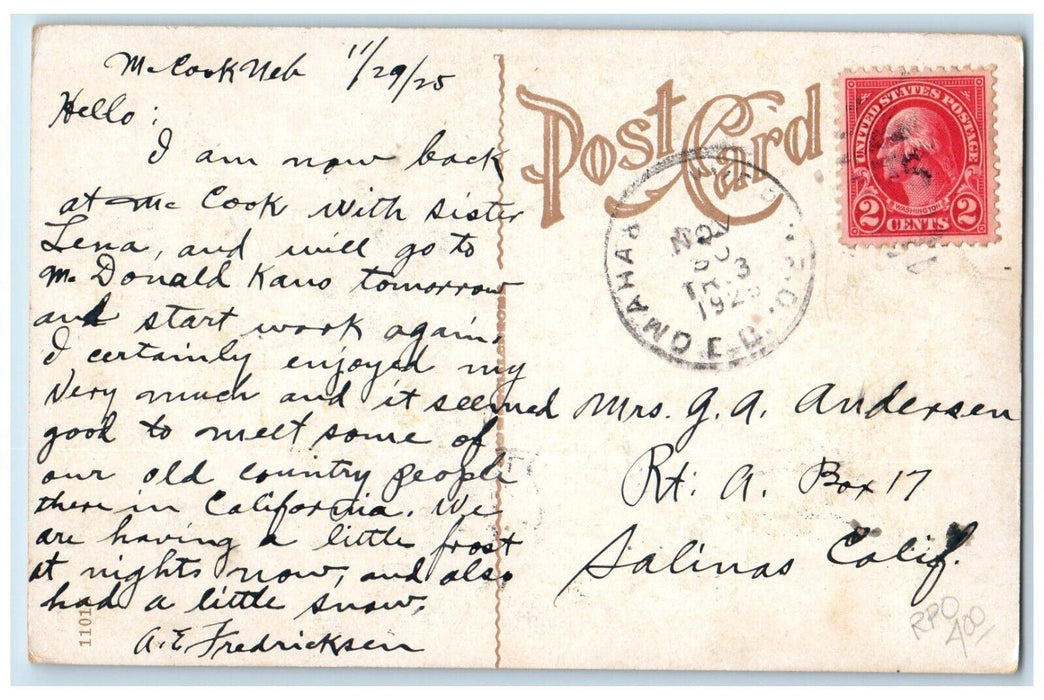 McCook Neb 11/29/25
Hello:
I am now back
at Mc Cook with sister
Lena, and will go to
Mc Donald Kans tomorrow
and start work again.
I certainly enjoyed my
very much and it seemed
good to meet some of
our old country people
there in California. We
are having a little frost
at nights now, and also
had a little snow.
A.E Fredricksen
1101
Post Card
UNITED STATES POSTAGE
WASHINGTON
2 CENTS 2
OMAHA
E.D.
R.P.O.
NOV
3
192
Mrs. G. A. Andersen
Rt. A. Box 17
Salinas Calif.
RPO
400/